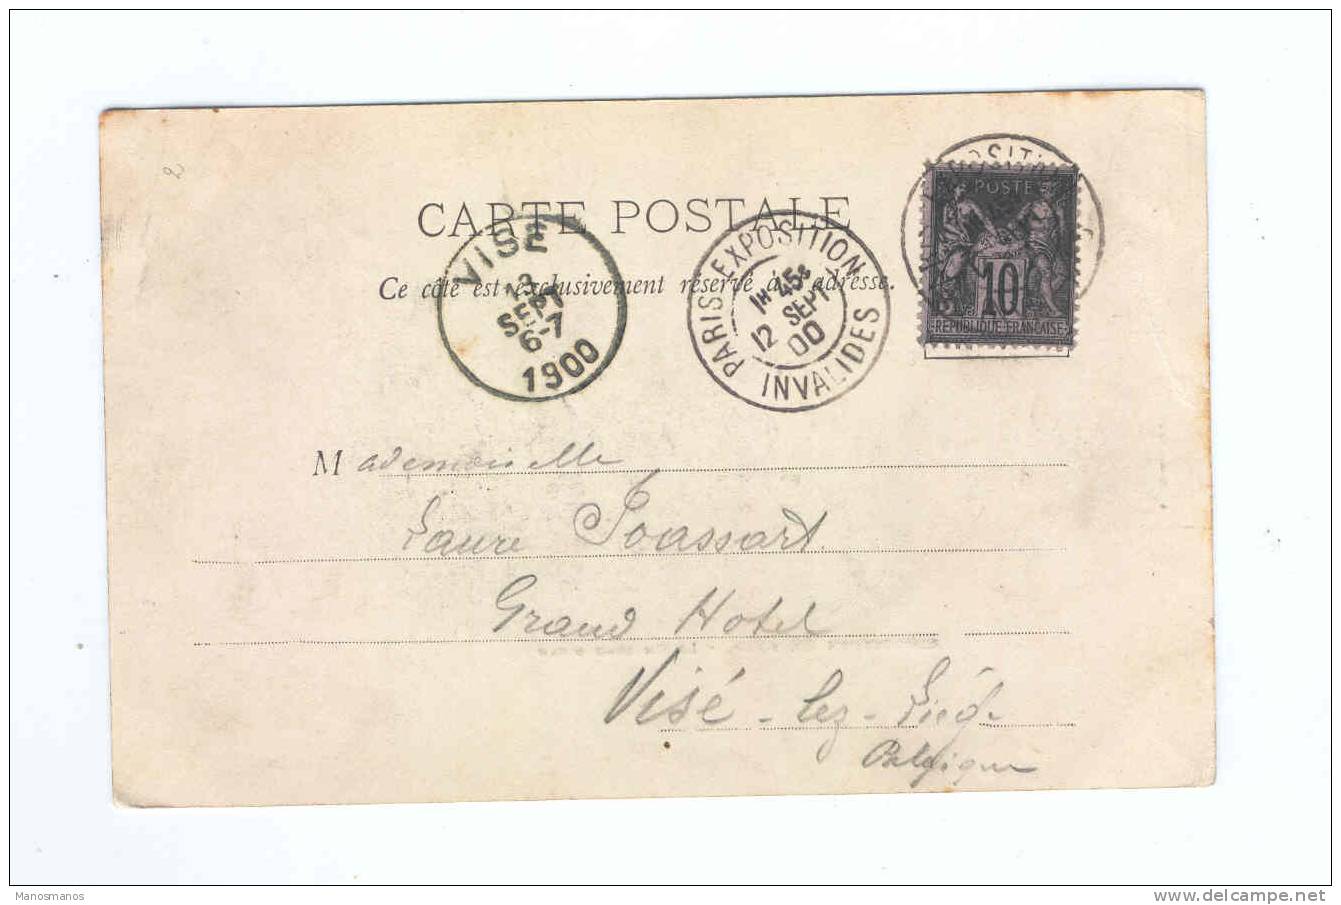 2
CARTE POSTALE
Ce côté est exclusivement réservé à l'adresse.
VISÉ
13
SEPT
6-7
1900
PARIS EXPOSITION
1H 45S
12 SEPT
00
INVALIDES
POSITI
POSTE
10
RÉPUBLIQUE FRANÇAISE
Mademoiselle
Laure Joassart
Grand Hotel
Visé - lez - Liége
Belgique
Manosmanos
delcampe.net